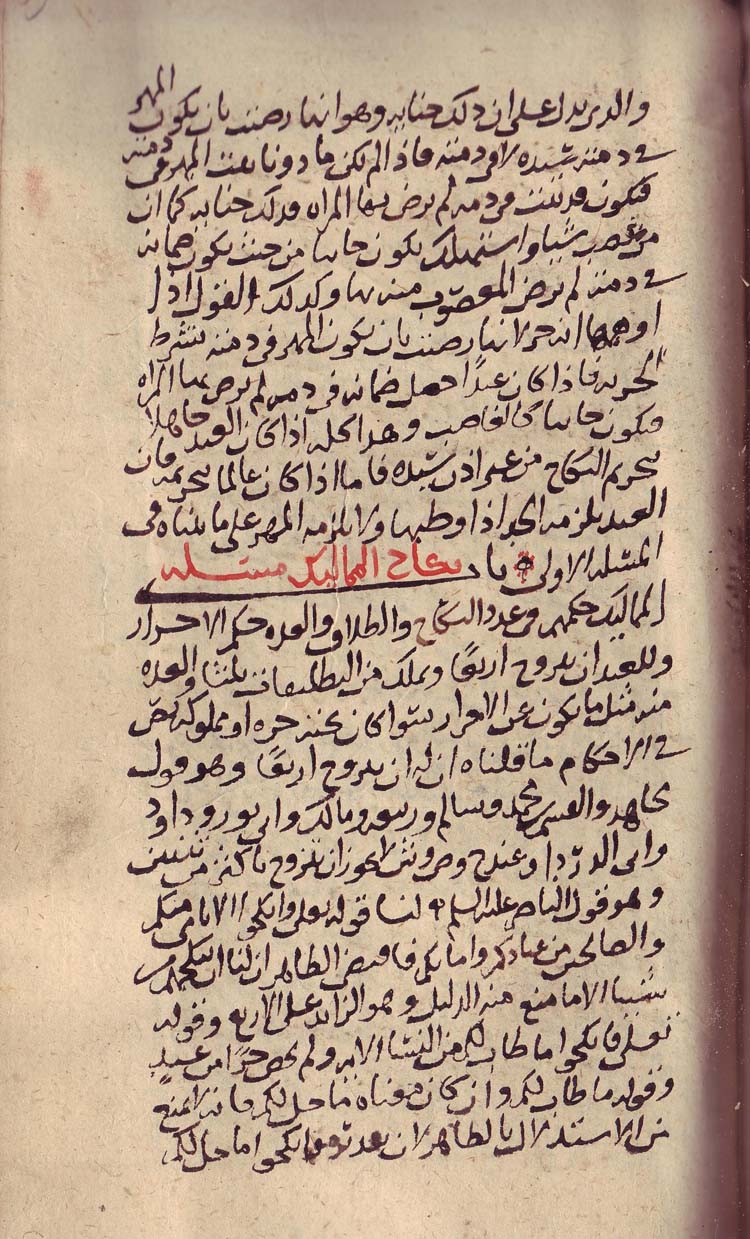 والذي يدل على ان ذلك جنايه وهو انها رضيت بان يكون المهر
في ذمته سيده لا في ذمته فاذا لم يكن ماذونا بقت المهر في ذمته
فيكون قد ثبت في ذمه لم يرض بها المراه فذلك جنايه كما ان
من غصب شيا واستهلكه يكون جانيا من حيث يكون ضمانه
في ذمته لم يرض المغصوب منه بها وكذلك القول اذا
اوهمها انه حر لانها رضيت بان يكون المهر في ذمته بشرط
الحريه فاذا كان عبدًا حصل ضمانه في ذمه لم يرض بها المراه
فيكون جانيا كالغاصب وهذا كله اذا كان العبد جاهلا
بتحريم النكاح من غير اذن سيده فاما اذا كان عالما بتحريمه فان
العبد يلزمه الحد اذا وطيها ولا يلزمه المهر على ما بيناه في
المسئله الاولى باب نكاح المماليك مسئله
المماليك حكمهم في عدد النكاح والطلاق والعده حكم الاحرار
وللعبد ان يتزوج اربعًا ويملك من التطليقات ثلثا والعده
منه مثل ما يكون عن الاحرار سوا كان تحته حره او مملوكه نص
في الاحكام ما قلناه ان له ان يتزوج اربعًا وهو قول
مجاهد والقسم بن محمد وسالم وربيعه ومالك وابي ثور وداود
وابي الدردا وعند ح وص وش لا يجوز ان يتزوج باكثر من ثنتين
وهو قول الناصر عليه السلم لنا قوله تعلى وانكحوا الايامى منكم
والصالحين من عبادكم وامايكم فاقتضى الظاهر ان لنا ان ننكحهم
ما شينا الا ما منع منه الدليل وهو الزايد على الاربع وقوله
تعلى فانكحوا ما طاب لكم من النسا الايه ولم يخص حرًا من عبدٍ
وقوله ما طاب لكم وان كان معناه ما حل لكم فانه لا يمنع
من الاستدلال بالظاهر لان تقديره فانكحوا ما حل لكم